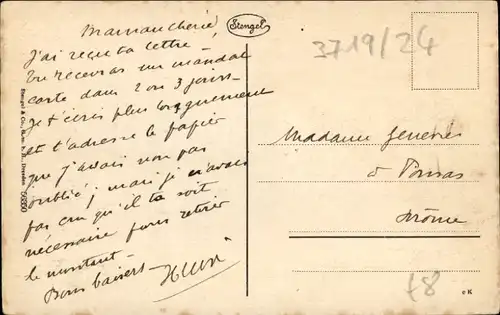 Maman cherie
J'ai reçu ta lettre.
Tu recevras un mandat
carte dans 2 ou 3 jours.
Je t'écris plus longuement
et t'adresse le papier
que j'avais non pas
oublié, mais je n'avais
pas cru qu'il te soit
nécessaire pour retirer
le montant.
Bons baisers.
Stengel
3719/24
Madame
à Ponsas
Drôme
48
e K
Stengel & Co., Dresden